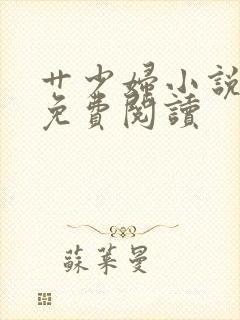 廿少婦小說
免費閱讀
蘇萊曼